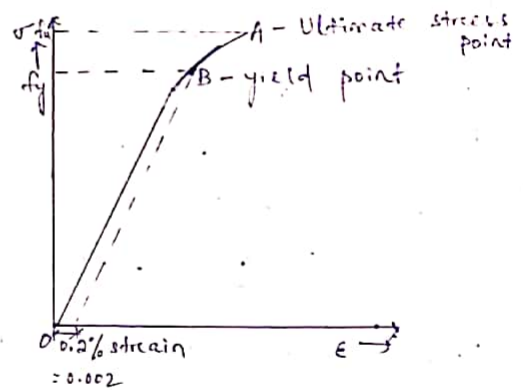 σ fu A - Ultimate stress
point
fy B - yield point
0 0.2% strain
= 0.002
ε